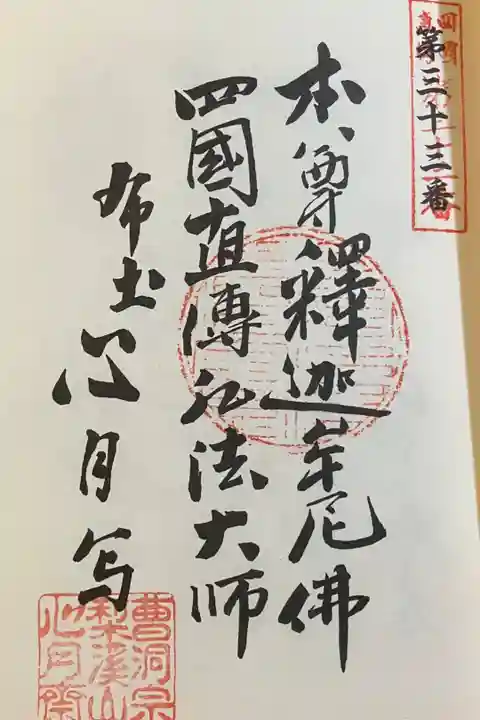 第三十三番
本尊釋迦牟尼佛
四國直傳弘法大师
布土心月斎
曹洞宗
梨溪山
心月齋